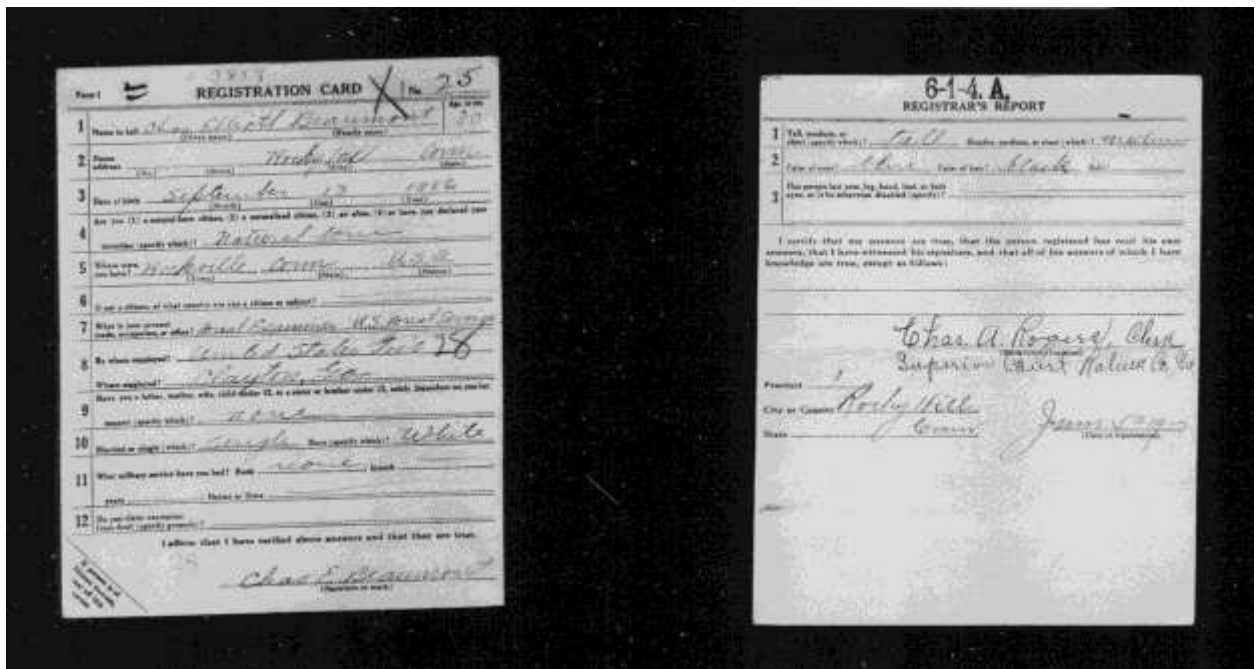 Form 1 REGISTRATION CARD X No. 25
1 Name in full Chas Elliott Beaumont Age, in yrs.
(Given name) (Family name)
2 Home address Rocky Hill Conn
(No.) (Street) (State)
3 Date of birth September 13
(Month) (Day) (Year)
Are you (1) a natural-born citizen, (2) a naturalized citizen, (3) an alien, (4) or have you declared your
4 intention (specify which)?
5 Where were you born? Rockville Conn U.S.A
(Town) (State) (Nation)
6 If not a citizen, of what country are you a citizen or subject?
7 What is your present trade, occupation, or office? Examiner U.S.
8 By whom employed? United States 28
Where employed? Clayton, Ga
Have you a father, mother, wife, child under 12, or a sister or brother under 12, solely dependent on you for
9 support (specify which)? none
10 Married or single (which)? single Race (specify which)? White
11 What military service have you had? Rank none branch
years Nation or State
12 Do you claim exemption from draft (specify grounds)?
I affirm that I have verified above answers and that they are true.
Chas E. Beaumont
(Signature or mark)
6-1-4. A.
REGISTRAR'S REPORT
1 Tall, medium, or short (specify which)? Tall Slender, medium, or stout (which)? medium
2 Color of eyes? Color of hair? black
3 Has person lost arm, leg, hand, foot, or both eyes, or is he otherwise disabled (specify)?
I certify that my answers are true, that the person registered has read his own
answers, that I have witnessed his signature, and that all of his answers of which I have
knowledge are true, except as follows:
Chas. A. Rogers, Clerk
Superior Court
Precinct 1
City or County Rocky Hill
State Conn
(Date of registration)